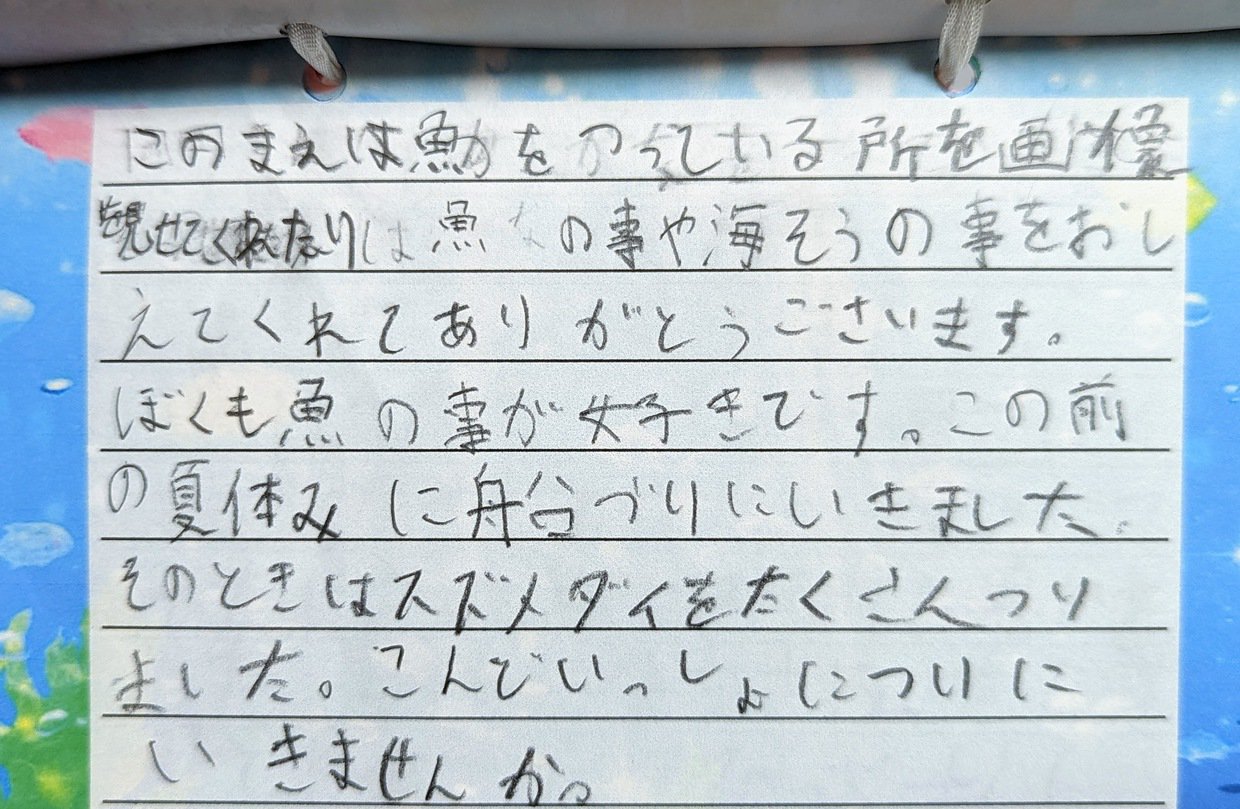 このまえは魚をかっている所を画像
を見せてくれたり魚の事や海そうの事をおし
えてくれてありがとうございます。
ぼくも魚の事が好きです。この前
の夏休みに舟台づりにいきました。
そのときはスズメダイをたくさんつり
ました。こんどいっしょにつりに
いきませんか。